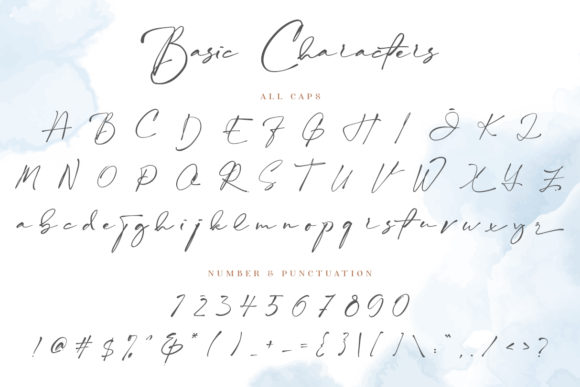 Basic Characters
ALL CAPS
A B C D E F G H I J K L
M N O P Q R S T U V W X Y Z
a b c d e f g h i j k l m n o p q r s t u v w x y z
NUMBER & PUNCTUATION
1 2 3 4 5 6 7 8 9 0
! @ # $ % ^ & * ( ) _ + - = { } | [ ] \ : " , . / < > ?